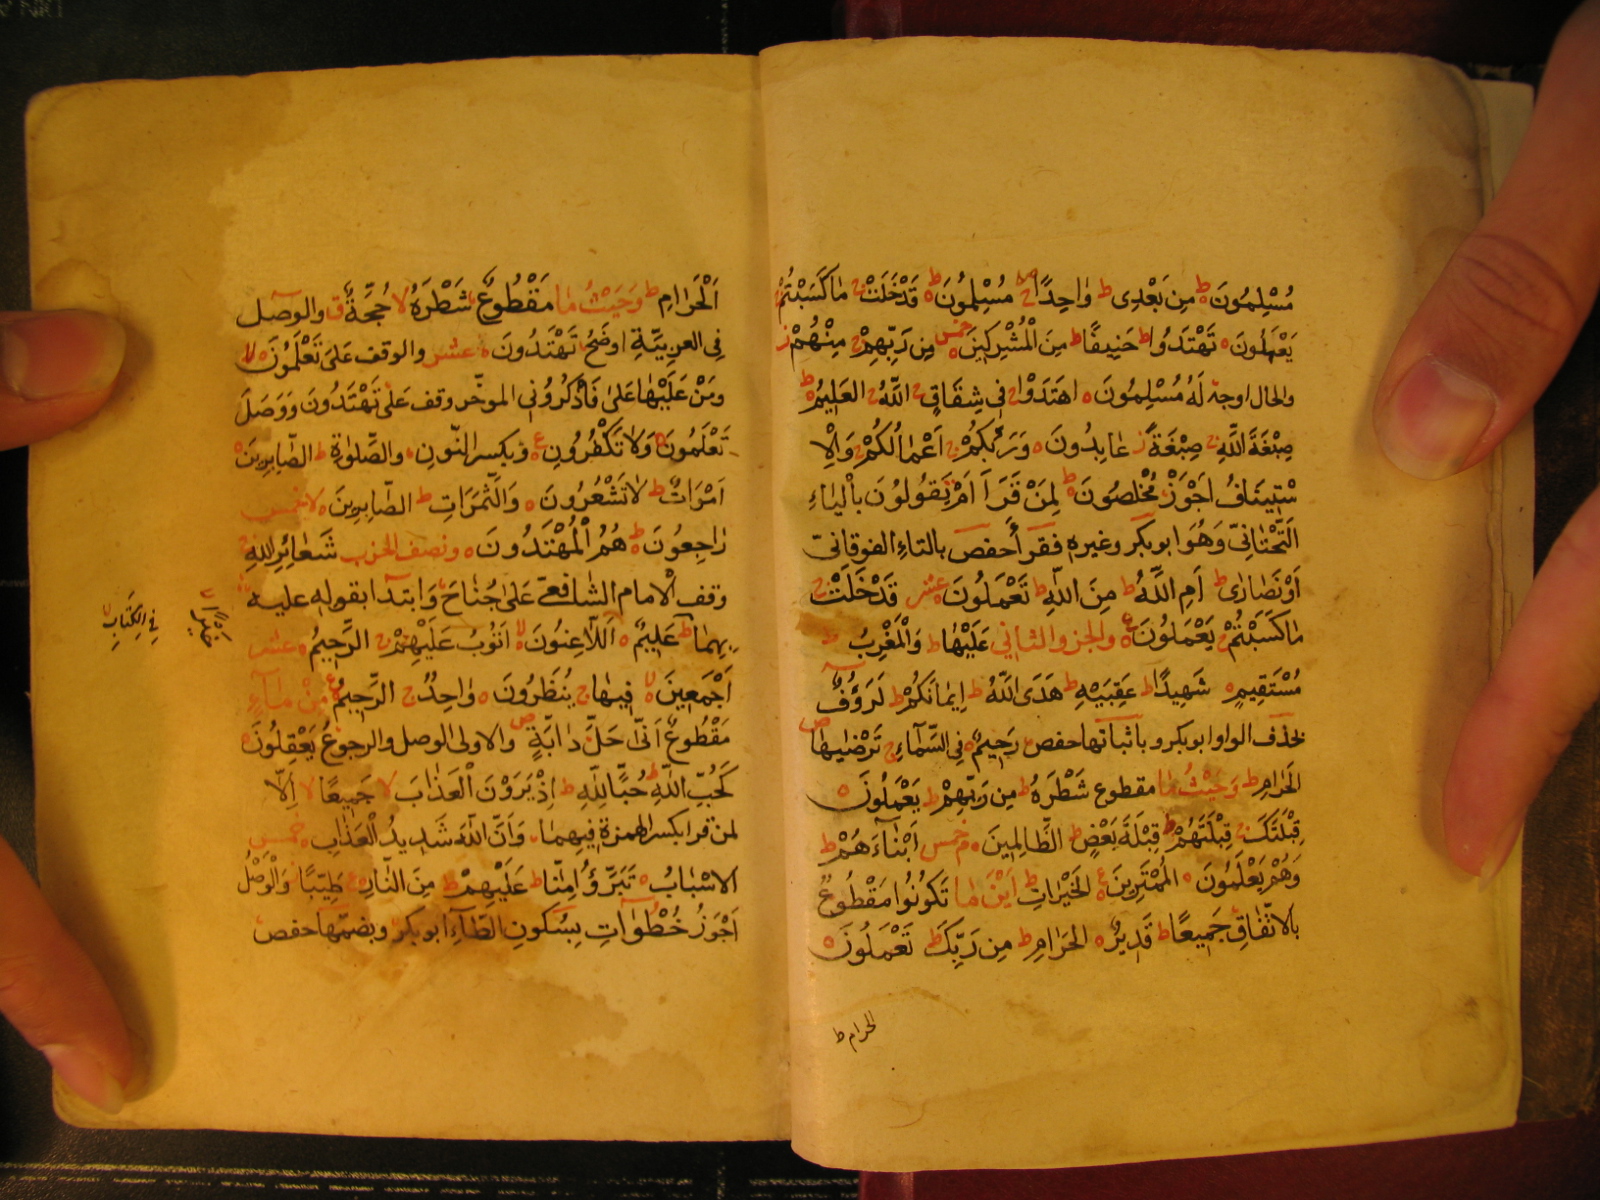 مُسْلِمُونَ ط مِن بَعْدِى ط وَٰاحِدًا ج مُسْلِمُونَ ه ط قَدْ خَلَتْ ج مَا كَسَبْتُمْ ج
يَعْمَلُونَ ه تَهْتَدُوا ط حَنِيفًا ط مِنَ الْمُشْرِكِينَ ه خمس مِن رَبِّهِمْ ج مِنْهُمْ ز
والحال اوجه لَهُ مُسْلِمُونَ ه اهتَدَوْا ج فِي شِقَاقٍ ج اللّٰهُ ج العَلِيمُ ه ط
صِبْغَةَ اللّٰهِ ج صِبْغَةً ز عَابِدُونَ ه وَرَبُّكُمْ ج اَعْمَالُكُمْ ج وَالْاِ
سْتِينَافُ اَجْوَزُ مُخْلِصُونَ ه ط لِمَنْ قَرَأَ اَمْ يَقُولُونَ بِالْيَاءِ
التَّحْتَانِيّ وَهُوَ ابوبكر وغيره فقرأ حفص بالتاءِ الفوقانىّ
اَوْ نَصَارٰى ط اَمِ اللّٰهُ ط مِنَ اللّٰهِ ط تَعْمَلُونَ عشر قَدْ خَلَتْ ج
مَا كَسَبْتُمْ ج يَعْمَلُونَ ه ع والجزء الثانى عَلَيْهَا ط وَالْمَغْرِبُ ط
مُسْتَقِيمٍ ه شَهِيدًا ط عَقِبَيْهِ ط هَدَى اللّٰهُ ط اِيمَانَكُمْ ط لَرَؤُفٌ
بحذف الواو ابوبكر و باثباتها حفص رَحِيمٌ ه فِي السَّمَآءِ ج تَرْضٰيهَا ص
الحَرَامِ ط وَحَيْثُ مَا مقطوع شَطْرَهُ ط مِن رَبِّهِمْ ط يَعْمَلُونَ ه
قِبْلَتَكَ ج قِبْلَتَهُمْ ج قِبْلَةَ بَعْضٍ ط الظَّالِمِينَ ه م خمس اَبْنَآءَهُمْ ط
وَهُمْ يَعْلَمُونَ ه المُمْتَرِينَ ه ع الخَيْرَاتِ ط اَيْنَ مَا تَكُونُوا مَقْطُوعٌ
بالاتّفاقِ جَمِيعًا ط قَدِيرٌ ه الحَرَامِ ط مِن رَبِّكَ ط تَعْمَلُونَ ه
الحرام ط
اَلْحَرَامِ ط وَحَيْثُ مَا مَقْطُوعٌ شَطْرَهُ لا حُجَّةٌ ق والوصل
فِى العربيَّةِ اوضَحُ تَهْتَدُونَ ه عشر والوقف عَلىٰ تَعْلَمُونَ ه لا
ومَنْ عَلَيْهَا عَلىٰ فَاذْكُرُونِى الموخّر وقف عَلىٰ تَهْتَدُونَ وَوَصَلَ
تَعْلَمُونَ وَلَا تَكْفُرُونِ ه ع وبكسر النّونِ والصَّلٰوةِ ط الصَّابِرِينَ ه
اَمْوَاتٌ ط لَا تَشْعُرُونَ ه وَالثَّمَرَاتِ ط الصَّابِرِينَ ه لا خمس
رَاجِعُونَ ه ط هُمُ الْمُهْتَدُونَ ه ونصف الحزب شَعَائِرِ اللّٰهِ ج
وقف الامام الشافعى عَلىٰ جُنَاحَ وَابتدا بقوله عليه
بِهِمَا ط عَلِيمٌ ه اَللَّاعِنُونَ لا اَتُوبُ عَلَيْهِمْ ج الرَّحِيمُ ه عشر
اَجْمَعِينَ ه لا فِيهَا ج يُنْظَرُونَ ه وَٰاحِدٌ ج الرَّحِيمُ ه ع مِنْ مَآءٍ
مَقْطُوعٌ اَىّ حَلّ دَابَّةٍ ص والاولى الوصل والرجوع يَعْقِلُونَ ه
كَحُبِّ اللّٰهِ ط حُبًّا لِلّٰهِ ط اِذْ يَرَوْنَ الْعَذَابَ لا جَمِيعًا لا اِلَّا
لمن قرا بكسر الهمزة فِيهِمَا وَاَنَّ اللّٰهَ شَدِيدُ الْعَذَابِ ه خمس
الاسْبَابُ ه تَبَرَّؤُا مِنَّا ط عَلَيْهِمْ ط مِنَ النَّارِ ه ع طَيِّبًا وَالْوَصْلُ
اَجْوَزُ خُطُوَاتِ بِسُكُونِ الطَّآءِ ابوبكر وبضمّها حفص
فى الكِتَابِ لا